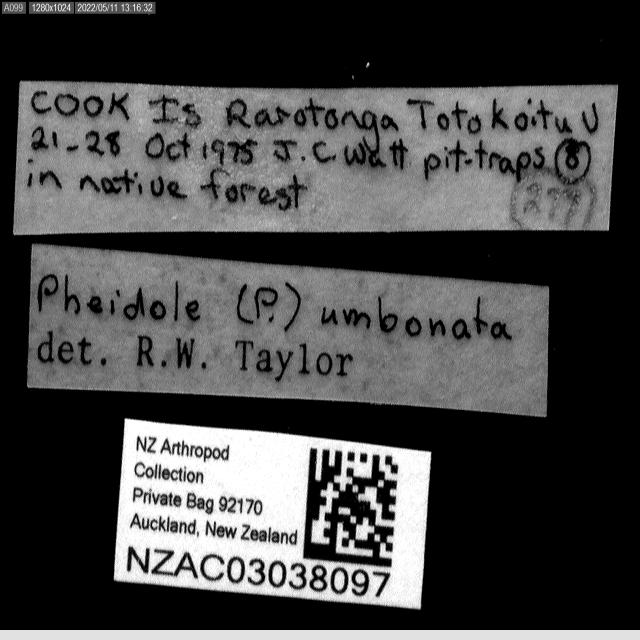 A099 1280x1024 2022/05/11 13:16:32
COOK Is Rarotonga Totokoitu V
21-28 Oct 1975 J.C. Watt pit-traps 8
in native forest
Pheidole (P.) umbonata
det. R.W. Taylor
NZ Arthropod
Collection
Private Bag 92170
Auckland, New Zealand
NZAC03038097